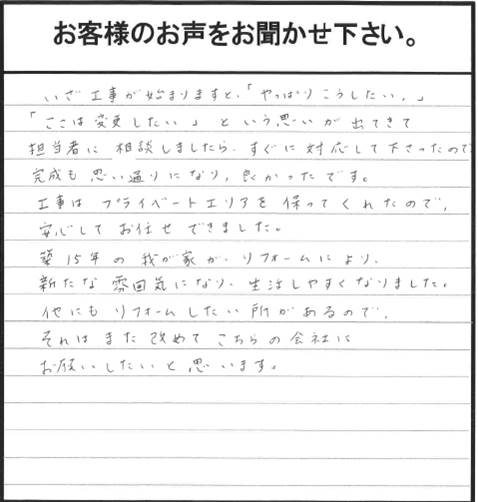 お客様のお声をお聞かせ下さい。
いざ工事が始まりますと、「やっぱりこうしたい。」
「ここは変更したい」という思いが出てきて
担当者に相談しましたら、すぐに対応して下さったので
完成も思い通りになり、良かったです。
工事はプライベートエリアを保ってくれたので、
安心してお任せできました。
築15年の我が家が、リフォームにより、
新たな雰囲気になり、生活しやすくなりました。
他にもリフォームしたい所があるので、
それはまた改めてこちらの会社に
お願いしたいと思います。